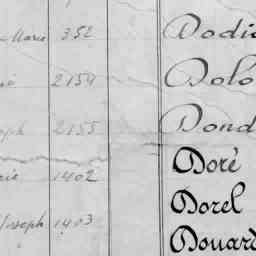 Marie 352 Dodi
2154 Dolo
oseph 2155 Dond
rie 1402 Doré
Joseph 1403 Dorel
Douard